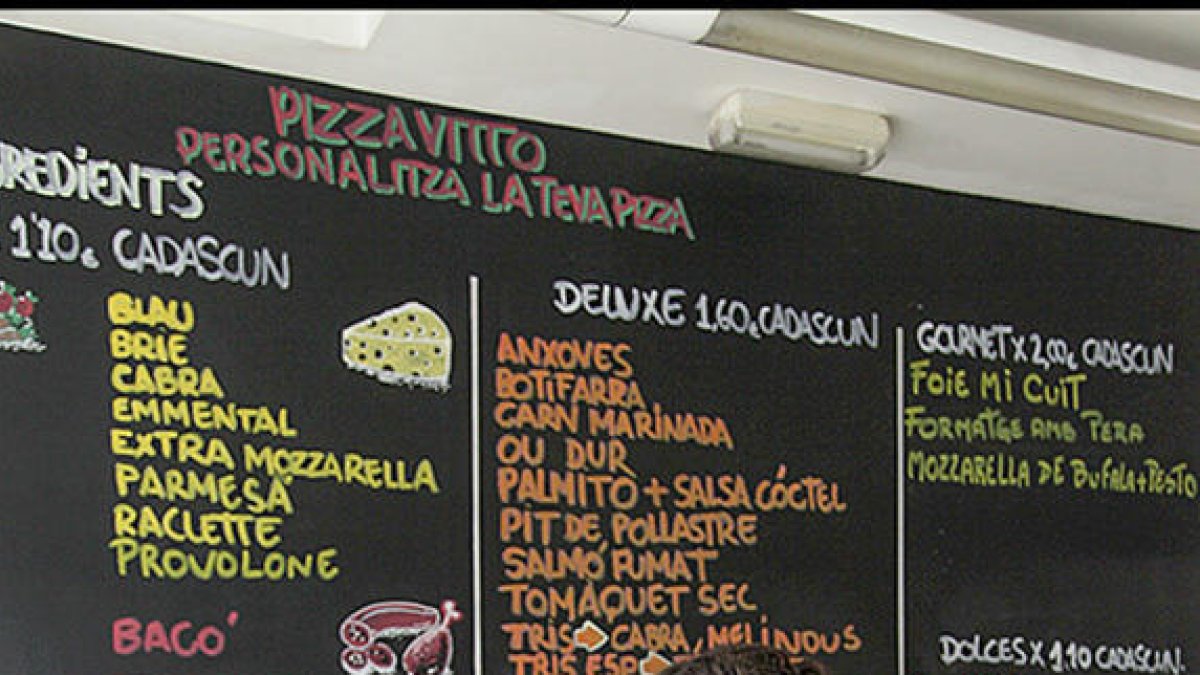 PIZZA VITTO
PERSONALITZA LA TEVA PIZZA
REDiENTS
1'10€ CADASCUN
BLAU
BRIE
CABRA
EMMENTAL
EXTRA MOZZARELLA
PARMESÀ
RACLETTE
PROVOLONE
BACÓ
DELUXE 1,60€ CADASCUN
ANXOVES
BOTIFARRA
CARN MARINADA
OU DUR
PALMITO + SALSA CÓCTEL
PIT DE POLLASTRE
SALMÓ FUMAT
TOMÀQUET SEC
TRIS CABRA, MEL i NOUS
TRIS ESP
GOURMET X 2,00€ CADASCUN
FOIE Mi CUIT
FORMATGE AMB PERA
MOZZARELLA DE BUFALA+PESTO
DOLCES X 1.10 CADASCUN.